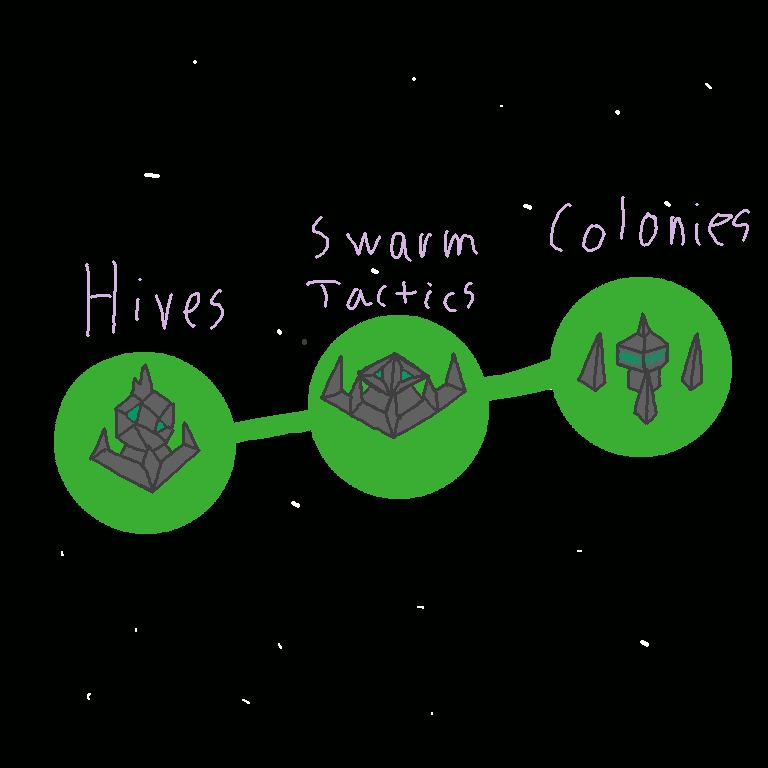 Hives
Swarm
Tactics
Colonies